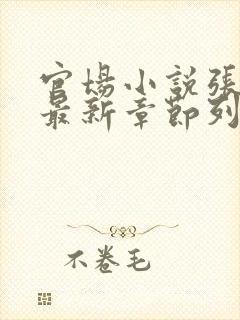 官场小説張
最新章節列
不卷毛